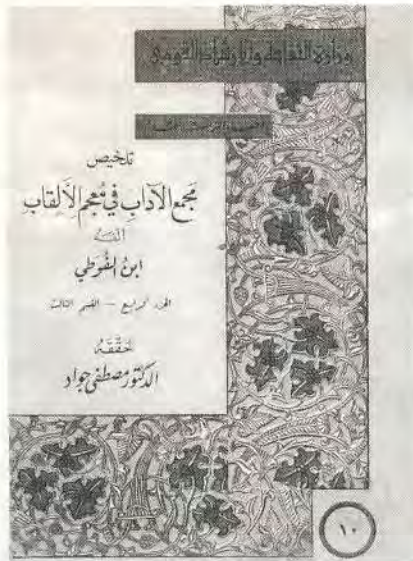 وزارة الثقافة والإرشاد القومي
تلخيص
مجمع الآداب في معجم الألقاب
ألفه
ابن الفوطي
الجزء الرابع — القسم الثالث
حققه
الدكتور مصطفى جواد
١٠